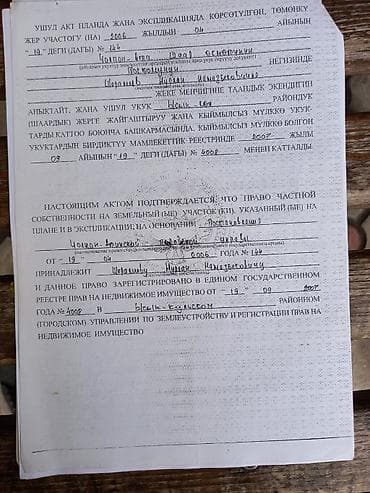 УШУЛ АКТ ПЛАНДА ЖАНА ЭКСПЛИКАЦИЯДА КӨРСӨТҮЛГӨН, ТӨМӨНКҮ
ЖЕР УЧАСТОГУ (НА) 2006 ЖЫЛДЫН 04 АЙЫНЫН
"19" ДЕГИ (ДАГЫ) № 146
Чолпон-Ата шаар
НЕГИЗИНДЕ
ЖЕКЕ МЕНЧИГИНЕ ТААНДЫК ЭКЕНДИГИН
АНЫКТАЙТ. ЖАНА УШУЛ УКУК Ысык-Көл РАЙОНДУК
(ШААРДЫК) ЖЕРГЕ ЖАЙГАШТЫРУУ ЖАНА КЫЙМЫЛСЫЗ МҮЛККӨ УКУК-
ТАРДЫ КАТТОО БОЮНЧА БАШКАРМАСЫНДА. КЫЙМЫЛСЫЗ МҮЛККӨ БОЛГОН
УКУКТАРДЫН БИРДИКТҮҮ МАМЛЕКЕТТИК РЕЕСТРИНДЕ 2007 ЖЫЛЫ
09 АЙЫНЫН "19" ДЕГИ (ДАГЫ) № 4008 МЕНЕН КАТТАЛДЫ.
НАСТОЯЩИМ АКТОМ ПОДТВЕРЖДАЕТСЯ, ЧТО ПРАВО ЧАСТНОЙ
СОБСТВЕННОСТИ НА ЗЕМЕЛЬНЫЙ (ЫЕ) УЧАСТОК (КИ). УКАЗАННЫЙ (ЫЕ) НА
ПЛАНЕ И В ЭКСПЛИКАЦИИ, НА ОСНОВАНИИ Постановления
Чолпон-Атинской городской управы
ОТ "19" 04 2006 ГОДА № 146
ПРИНАДЛЕЖИТ
И ДАННОЕ ПРАВО ЗАРЕГИСТРИРОВАНО В ЕДИНОМ ГОСУДАРСТВЕННОМ
РЕЕСТРЕ ПРАВ НА НЕДВИЖИМОЕ ИМУЩЕСТВО ОТ "19" 09 2007
ГОДА № 4008 В Ысык-Кульском РАЙОННОМ
(ГОРОДСКОМ) УПРАВЛЕНИИ ПО ЗЕМЛЕУСТРОЙСТВУ И РЕГИСТРАЦИИ ПРАВ НА
НЕДВИЖИМОЕ ИМУЩЕСТВО